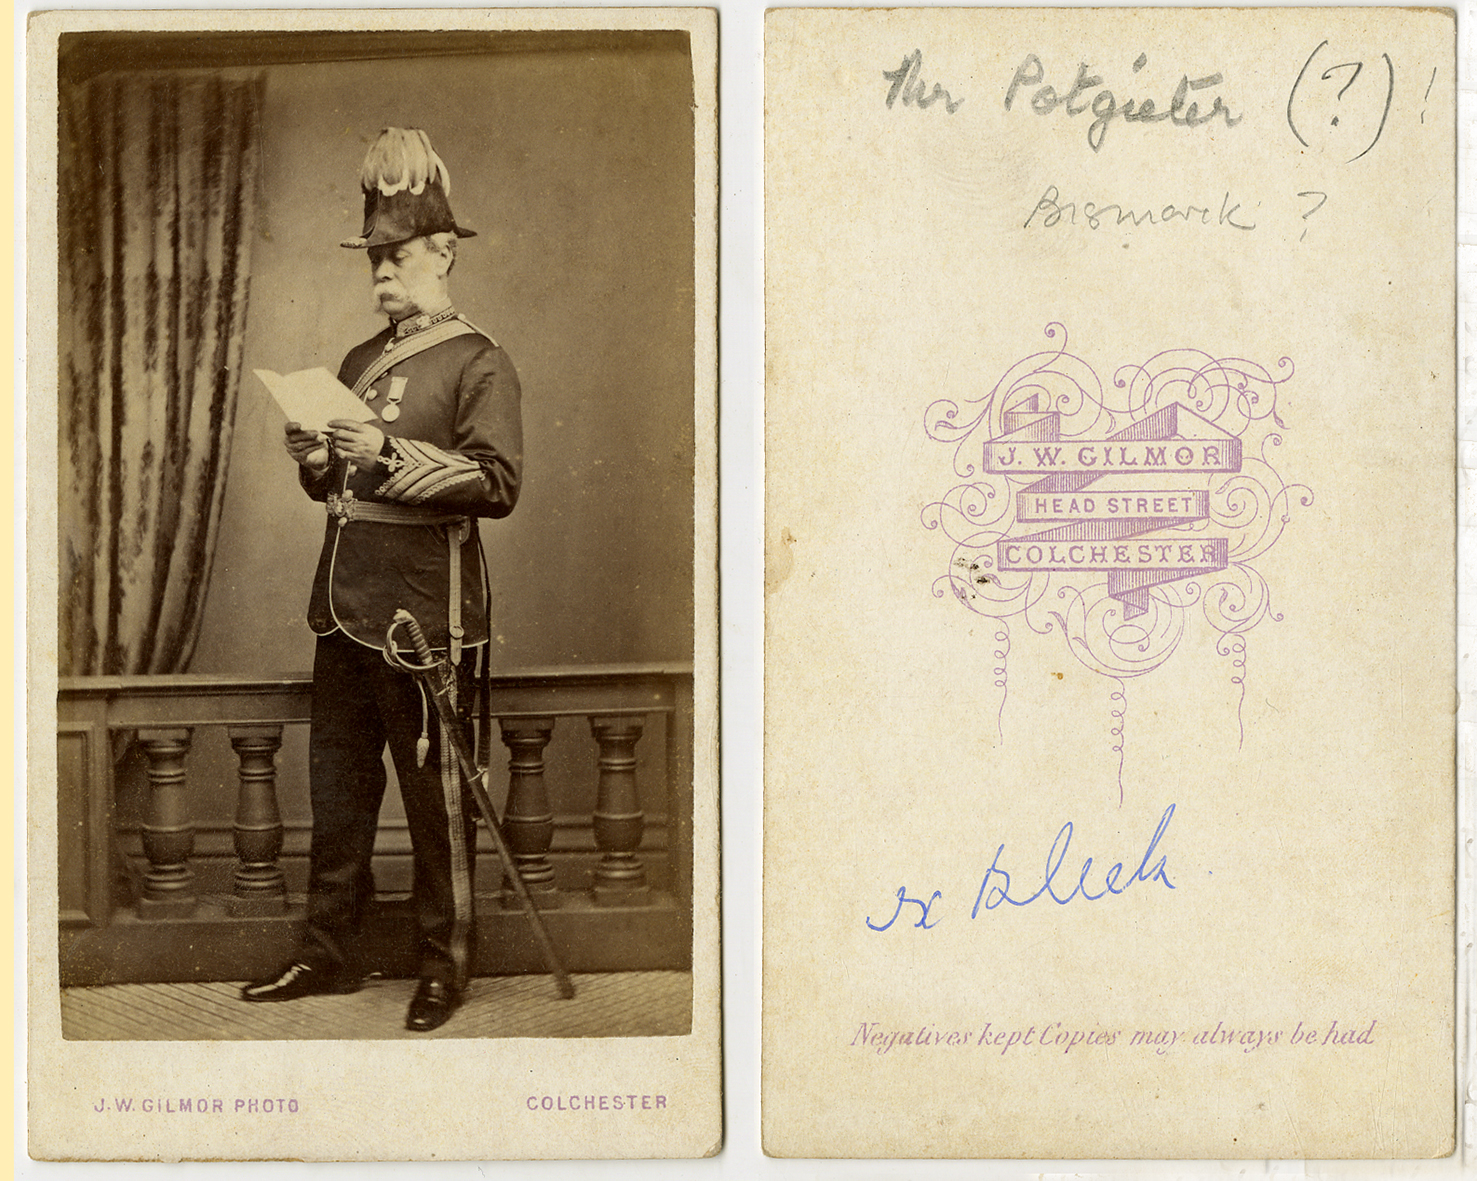 J.W. GILMOR PHOTO
COLCHESTER
Mr Potgieter (?) !
Bismarck ?
J. W. GILMOR
HEAD STREET
COLCHESTER
ex Bleek
Negatives kept Copies may always be had